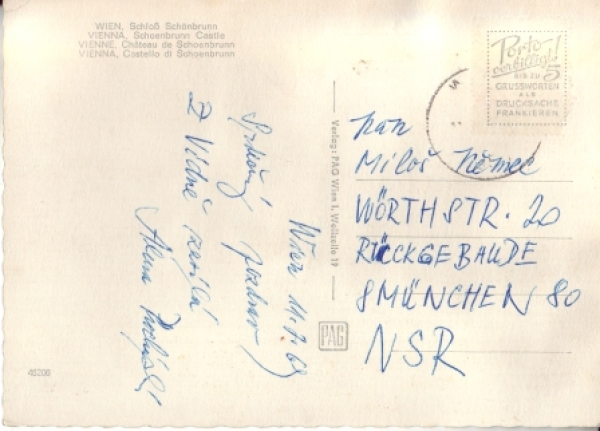 WIEN, Schloß Schönbrunn
VIENNA, Schoenbrunn Castle
VIENNE, Château de Schoenbrunn
VIENNA, Castello di Schoenbrunn
Porto
verbilligt!
5
BIS ZU
GRUSSWORTEN
ALS
DRUCKSACHE
FRANKIEREN
Wien
Srdečný pozdrav
Z Vídně zasílá
Alena
Verlag: PAG Wien I, Wollzeile 19
PAG
40206
Pan
Miloš Němec
WÖRTHSTR. 20
RÜCKGEBAUDE
8 MÜNCHEN 80
NSR